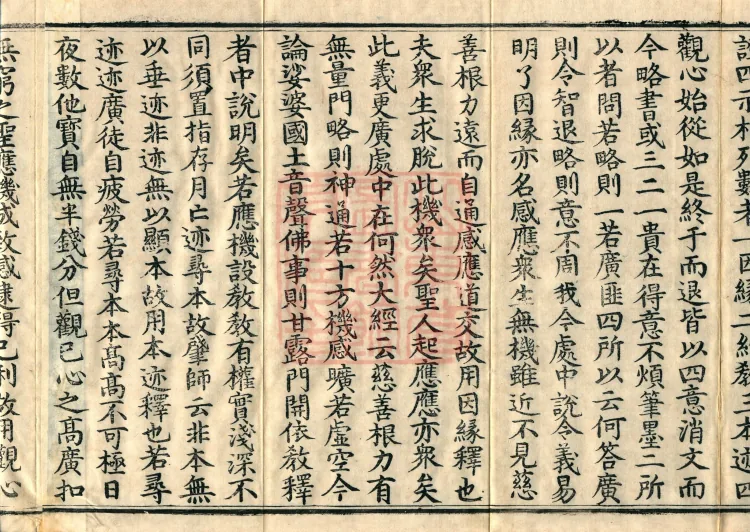 四示相列數者一因緣二約教三本迹四
觀心始從如是終于而退皆以四意消文而
今略書或三二一貴在得意不煩筆墨二所
以者問若略則一若廣匪四所以云何答廣
則令智退略則意不周我今處中說令義易
明了因緣亦名感應衆生無機雖近不見慈
善根力遠而自通感應道交故用因緣釋也
夫衆生求脫此機衆矣聖人起應應亦衆矣
此義更廣處中在何然大經云慈善根力有
無量門略則神通若十方機感曠若虛空今
論娑婆國土音聲佛事則甘露門開依教釋
者中說明矣若應機設教教有權實淺深不
同須置指存月亡迹尋本故肇師云非本無
以垂迹非迹無以顯本故用本迹釋也若尋
迹迹廣徒自疲勞若尋本本髙髙不可極日
夜數他寶自無半錢分但觀己心之髙廣扣
無窮之聖應機成致感逮得己利故用觀心